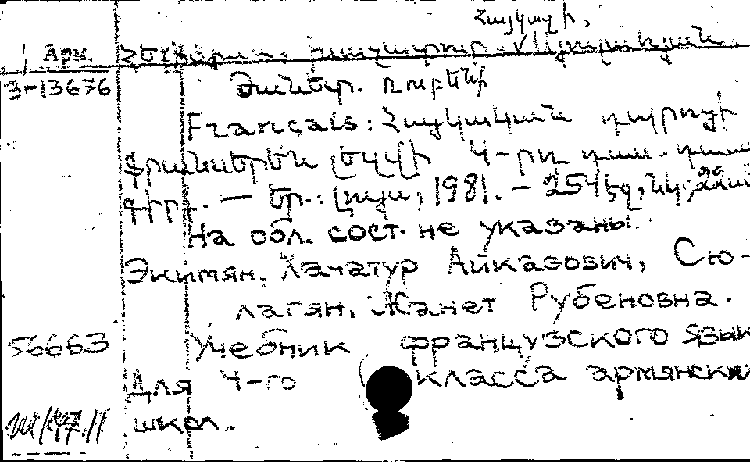 Հայկազի,
Арм.
3-13676 Ժանետ. Ռուբենի
Français: Հայկական դպրոցի
ֆրանսերեն լեզվի 4-րդ դաս.
գիրք. — Եր.: Լույս, 1981. — 254 էջ, նկ.
На обл. сост. не указаны.
Экимян, Хачатур Айказович, Сю-
лагян, Жанет Рубеновна.
56663 Учебник французского язык
Для 4-го класса армянски
школ.